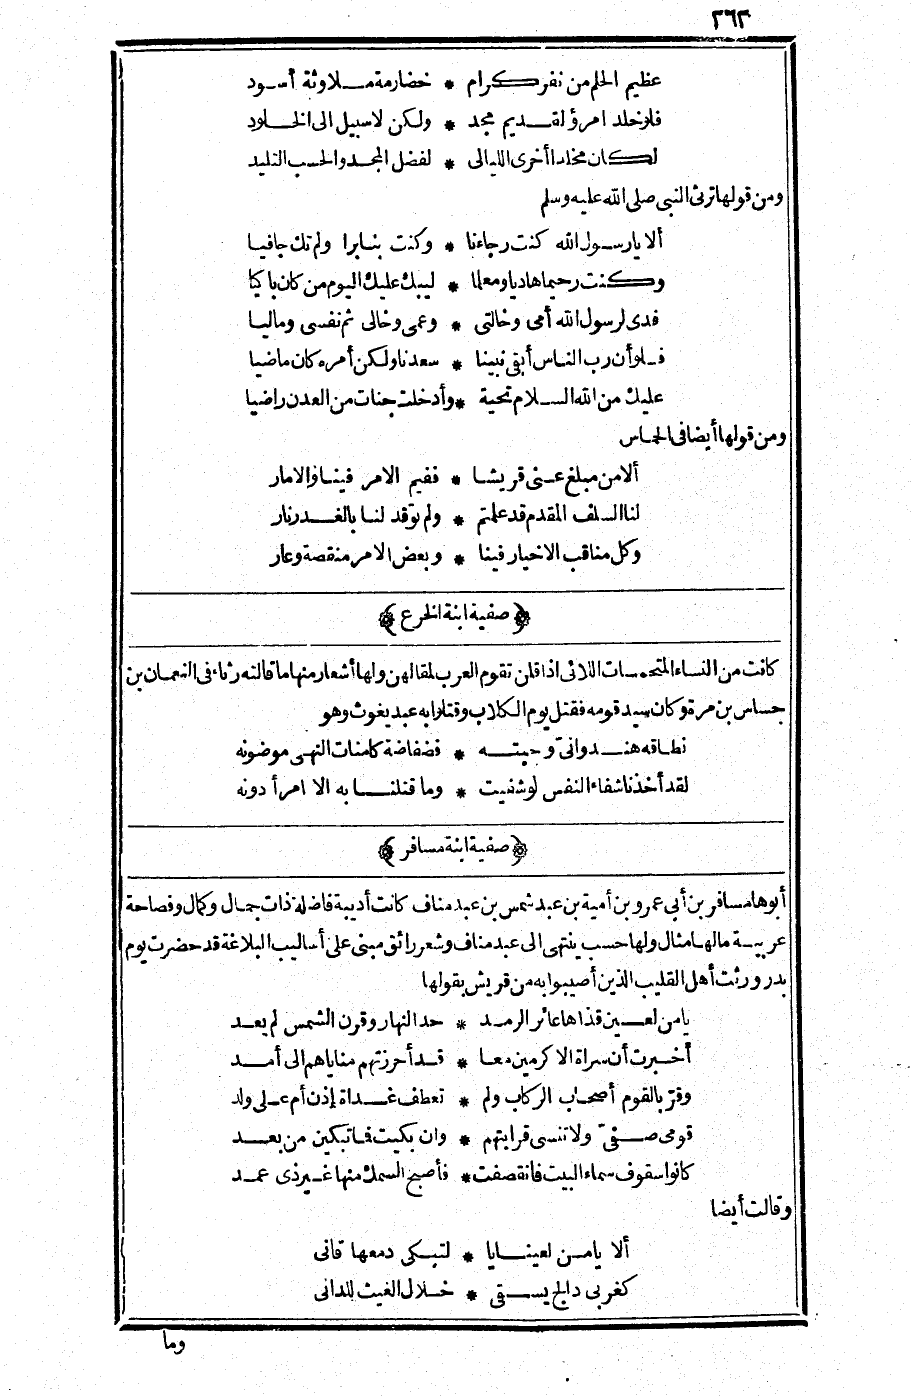 ٣٦٣
عظيم الحلم من نفر كرام * خضارمة ملاوثة أسود
فلو خلد امرؤ لقديم مجد * ولكن لا سبيل الى الخلود
لكان مخلدا أخرى الليالى * لفضل المجد والحسب التليد
ومن قولها ترثى النبى صلى الله عليه وسلم
ألا يا رسول الله كنت رجاءنا * وكنت بنا برا ولم تك جافيا
وكنت رحيما هاديا ومعلما * ليبك عليك اليوم من كان باكيا
فدى لرسول الله أمى وخالتى * وعمى وخالى ثم نفسى وماليا
فلو أن رب الناس أبقى نبينا * سعدنا ولكن أمره كان ماضيا
عليك من الله السلام تحية * وأدخلت جنات من العدن راضيا
ومن قولها أيضا فى الحماس
ألا من مبلغ عنى قريشا * ففيم الامر فينا والامار
لنا السلف المقدم قد علمتم * ولم توقد لنا بالغدر نار
وكل مناقب الاخيار فينا * وبعض الامر منقصة وعار
﴿ صفية ابنة الخرع ﴾
كانت من النساء المتحمسات اللائى اذا قلن تقوم العرب لمقالهن ولها أشعار منها ما قالته رثاء فى النعمان بن
جساس بن مرة وكان سيد قومه فقتل يوم الكلاب وقتلوا به عبد يغوث وهو
نطاقه هندوانىّ وجبته * فضفاضة كامنات النهى موضونه
لقد أخذنا شفاء النفس لو شفيت * وما قتلنا به الا امرأ دونه
﴿ صفية ابنة مسافر ﴾
أبوها مسافر بن أبى عمرو بن أمية بن عبد شمس بن عبد مناف كانت أديبة فاضلة ذات جمال وكمال وفصاحة
عربية مالها مثال ولها حسب ينتهى الى عبد مناف وشعر رائق مبنى على أساليب البلاغة قد حضرت يوم
بدر ورثت أهل القليب الذين أصيبوا به من قريش بقولها
يا من لعين قذاها عائر الرمد * حد النهار وقرن الشمس لم يعد
أخبرت أن سراة الاكرمين معا * قد أحرزتهم مناياهم الى أمد
وفرّ بالقوم أصحاب الركاب ولم * تعطف غداة إذن أم على ولد
قومى صفىّ ولا تنسى قرابتهم * وان بكيت فما تبكين من بعد
كانوا سقوف سماء البيت فانقصفت * فأصبح السمك منها غير ذى عمد
وقالت أيضا
ألا يا من لعين بايا * لتبكى دمعها قانى
كغربى دالج يسقى * خلال الغيث للدانى
وما